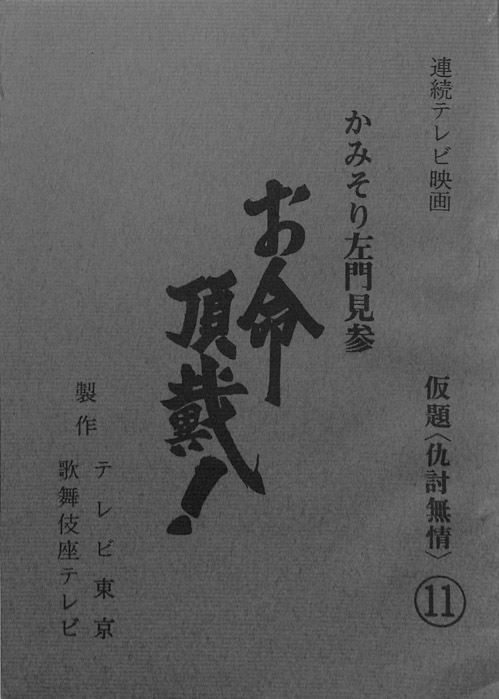 連続テレビ映画
仮題〈仇討無情〉
⑪
かみそり左門見参
お命
頂戴!
製作
テレビ東京
歌舞伎座テレビ